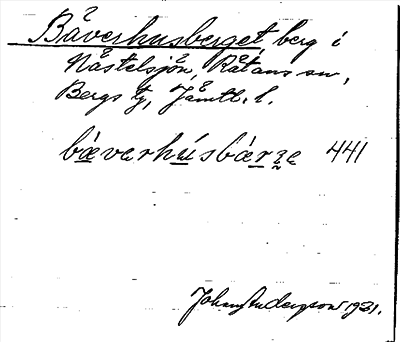 Båverhusberget, berg i
Nåstelsjön, Rätans sn,
Bergs tg, Jämtl. l.
bæverhúsbærʒe 441
Johan Anderson 1931.